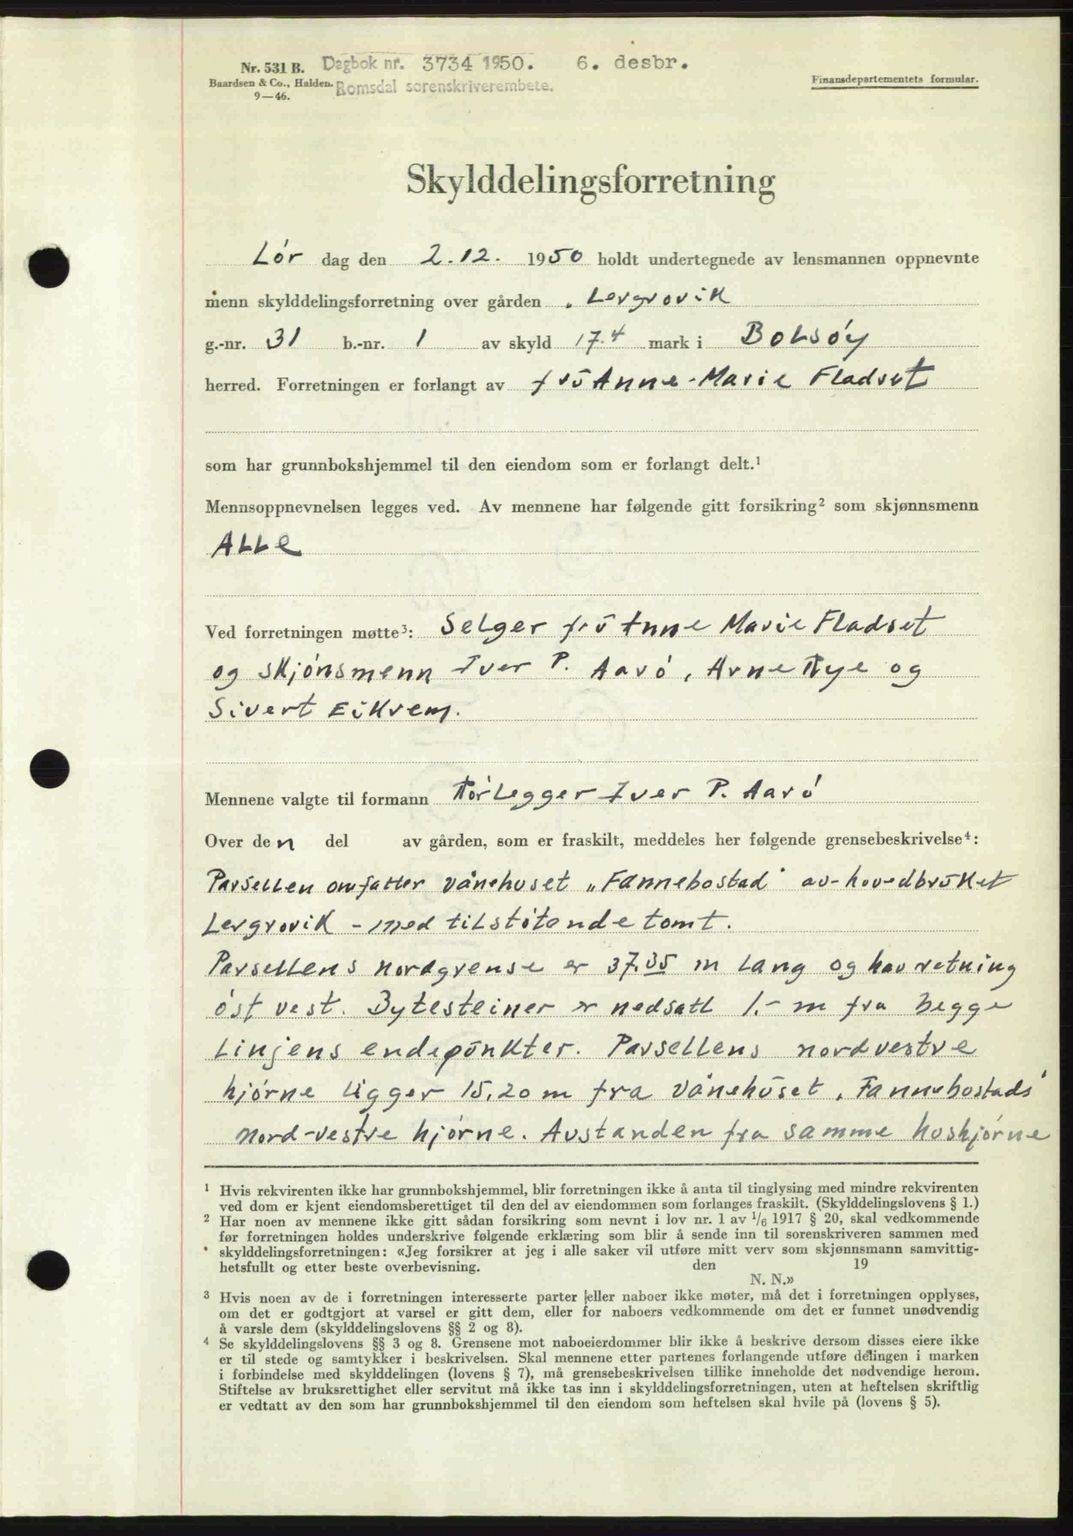 Nr. 531 B. Dagbok nr. 3734 1950. 6. desbr.
Baardsen & Co., Halden. Romsdal sorenskriverembete. Finansdepartementets formular.
9—46.
Skylddelingsforretning
Lór dag den 2.12. 1950 holdt undertegnede av lensmannen oppnevnte
menn skylddelingsforretning over gården Lergrovik
g.-nr. 31 b.-nr. 1 av skyld 17.4 mark i Bolsøy
herred. Forretningen er forlangt av frū Anne-Marie Fladset
som har grunnbokshjemmel til den eiendom som er forlangt delt.¹
Mennsoppnevnelsen legges ved. Av mennene har følgende gitt forsikring² som skjønnsmenn
Alle
Ved forretningen møtte³: Selger frū Anne Marie Fladset
og skjónsmenn Iver P. Aaró, Arne Rye og
Sivert Eikrem.
Mennene valgte til formann Rórlegger Iver P. Aaró
Over den del av gården, som er fraskilt, meddeles her følgende grensebeskrivelse⁴:
Parsellen omfatter vånehuset „Fannebostad" av hovedbrūket
Lergrovik - med tilstótende tomt.
Parsellens nordgrense er 37.35 m lang og har retning
óst vest. Bytesteiner er nedsatt 1.- m fra begge
linjens endepūnkter. Parsellens nordvestre
hjórne ligger 15,20 m fra vånehūset „Fannebostads"
nord-vestre hjórne. Avstanden fra samme hushjórne
¹ Hvis rekvirenten ikke har grunnbokshjemmel, blir forretningen ikke å anta til tinglysing med mindre rekvirenten
ved dom er kjent eiendomsberettiget til den del av eiendommen som forlanges fraskilt. (Skylddelingslovens § 1.)
² Har noen av mennene ikke gitt sådan forsikring som nevnt i lov nr. 1 av 1/6 1917 § 20, skal vedkommende
før forretningen holdes underskrive følgende erklæring som blir å sende inn til sorenskriveren sammen med
skylddelingsforretningen: «Jeg forsikrer at jeg i alle saker vil utføre mitt verv som skjønnsmann samvittig-
hetsfullt og etter beste overbevisning. den 19
N. N.»
³ Hvis noen av de i forretningen interesserte parter eller naboer ikke møter, må det i forretningen opplyses,
om det er godtgjort at varsel er gitt dem, eller for naboers vedkommende om det er funnet unødvendig
å varsle dem (skylddelingslovens §§ 2 og 8).
⁴ Se skylddelingslovens §§ 3 og 8. Grensene mot naboeierdommer blir ikke å beskrive dersom disses eiere ikke
er til stede og samtykker i beskrivelsen. Skal mennene etter partenes forlangende utføre delingen i marken
i forbindelse med skylddelingen (lovens § 7), må grensebeskrivelsen tillike inneholde det nødvendige herom.
Stiftelse av bruksrettighet eller servitut må ikke tas inn i skylddelingsforretningen, uten at heftelsen skriftlig
er vedtatt av den som har grunnbokshjemmel til den eiendom som heftelsen skal hvile på (lovens § 5).